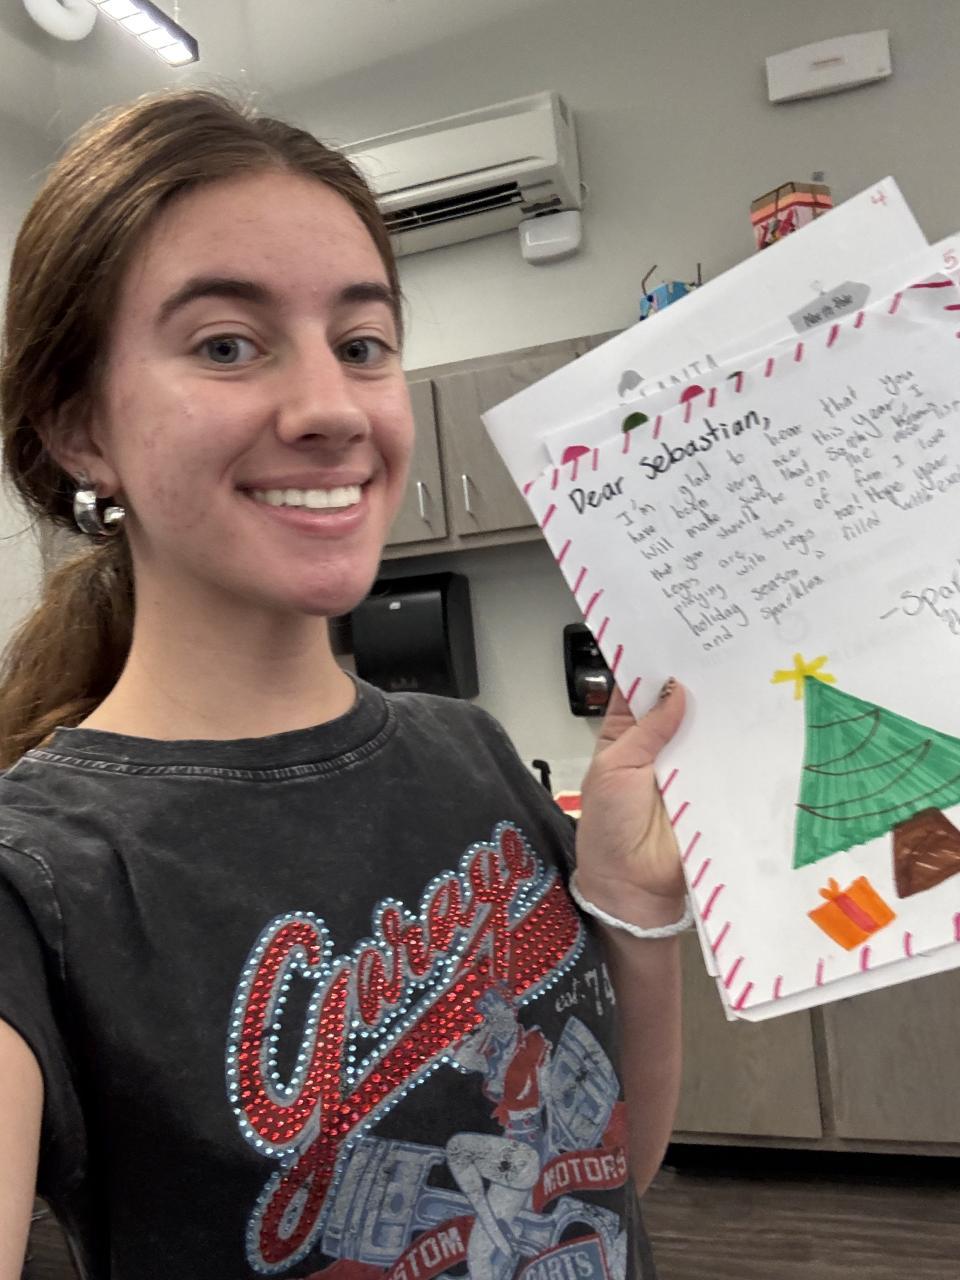 4
5
North Pole
SANTA
Dear Sebastian,
I'm glad to hear that you
have been very nice this year! I
will make sure that Santa knows
that you should be on the nice list
Legos are tons of fun I love
playing with legos too! Hope your
holiday season is filled with
and sparkles
Garage
est. 74
MOTORS
STOM
PARTS